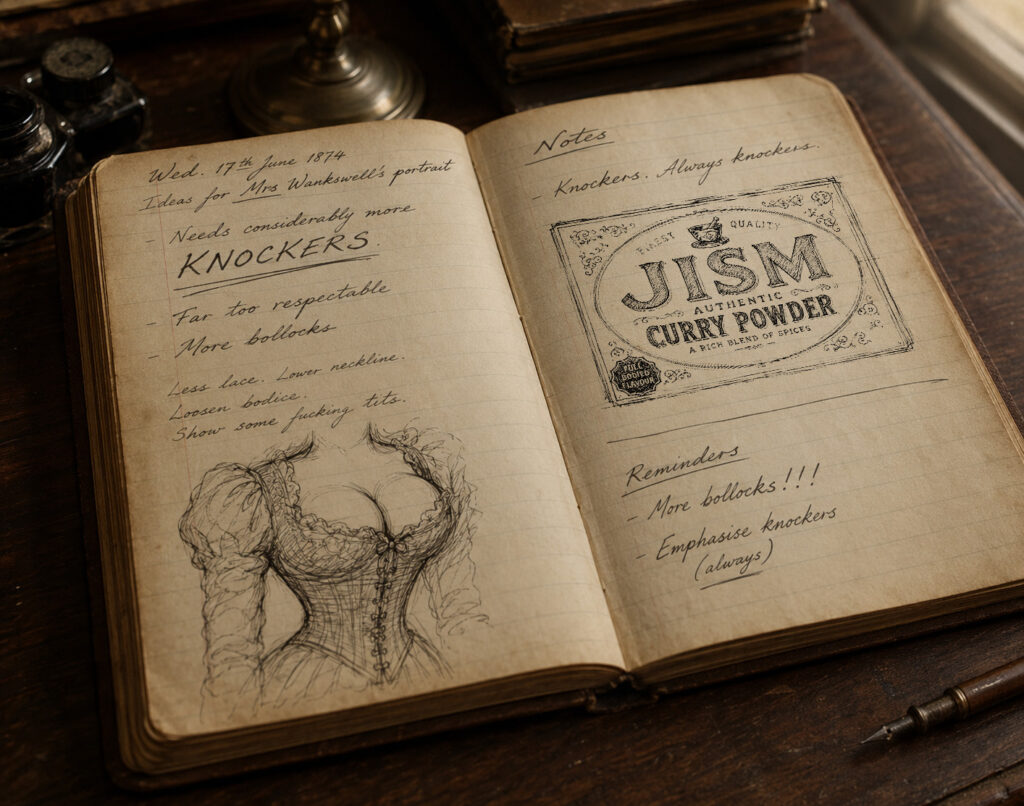 Wed. 17th June 1874
Ideas for Mrs Wankswell's portrait
- Needs considerably more
KNOCKERS.
- Far too respectable
- More bollocks
Less lace. Lower neckline.
Loosen bodice.
Show some fucking tits.
Notes
- Knockers. Always knockers.
FINEST QUALITY
JISM
AUTHENTIC
CURRY POWDER
A RICH BLEND OF SPICES
FULL
BODIED
FLAVOUR
Reminders
- More bollocks!!!
- Emphasise knockers
(always)